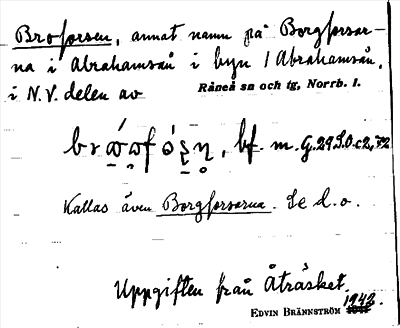 Broforsen, annat namn på Borgforsar-
na i Abrahamsån i byn / Abrahamsån,
i N.V. delen av Råneå sn och tg, Norrb. l.
bf. m. G.29
Kallas även Borgforsarna. Se d.o.
Uppgiften från Åträsket.
EDVIN BRÄNNSTRÖM 1942.